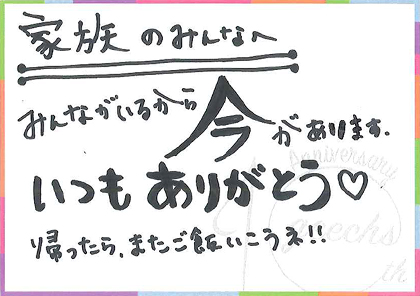 家族のみんなへ
みんながいるから今があります.
いつもありがとう♡
帰ったら、またご飯いこうネ!!
anniversary
geechs
th